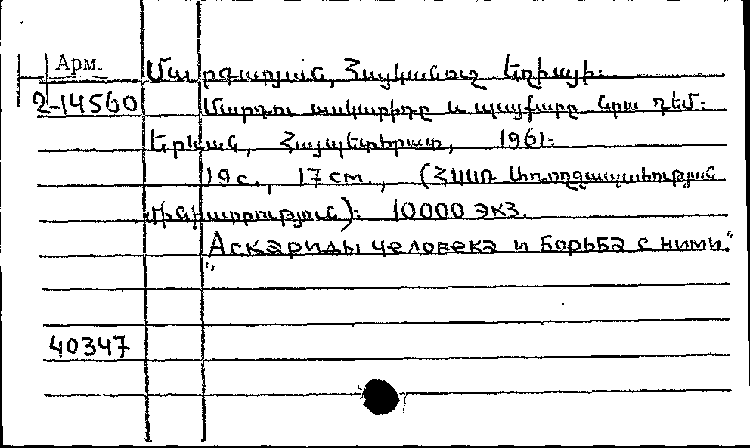 Арм.
Մարգարյան, Հայկանուշ Եղիայի.
2-14560
Մարդու ասկարիդը և պայքարը նրա դեմ.
Երևան, Հայպետհրատ, 1961.
19 с., 17 cm., (ՀՍՍՌ Առողջապահության
մինիստրություն). 10000 экз.
"Аскариды человека и борьба с ними."
40347